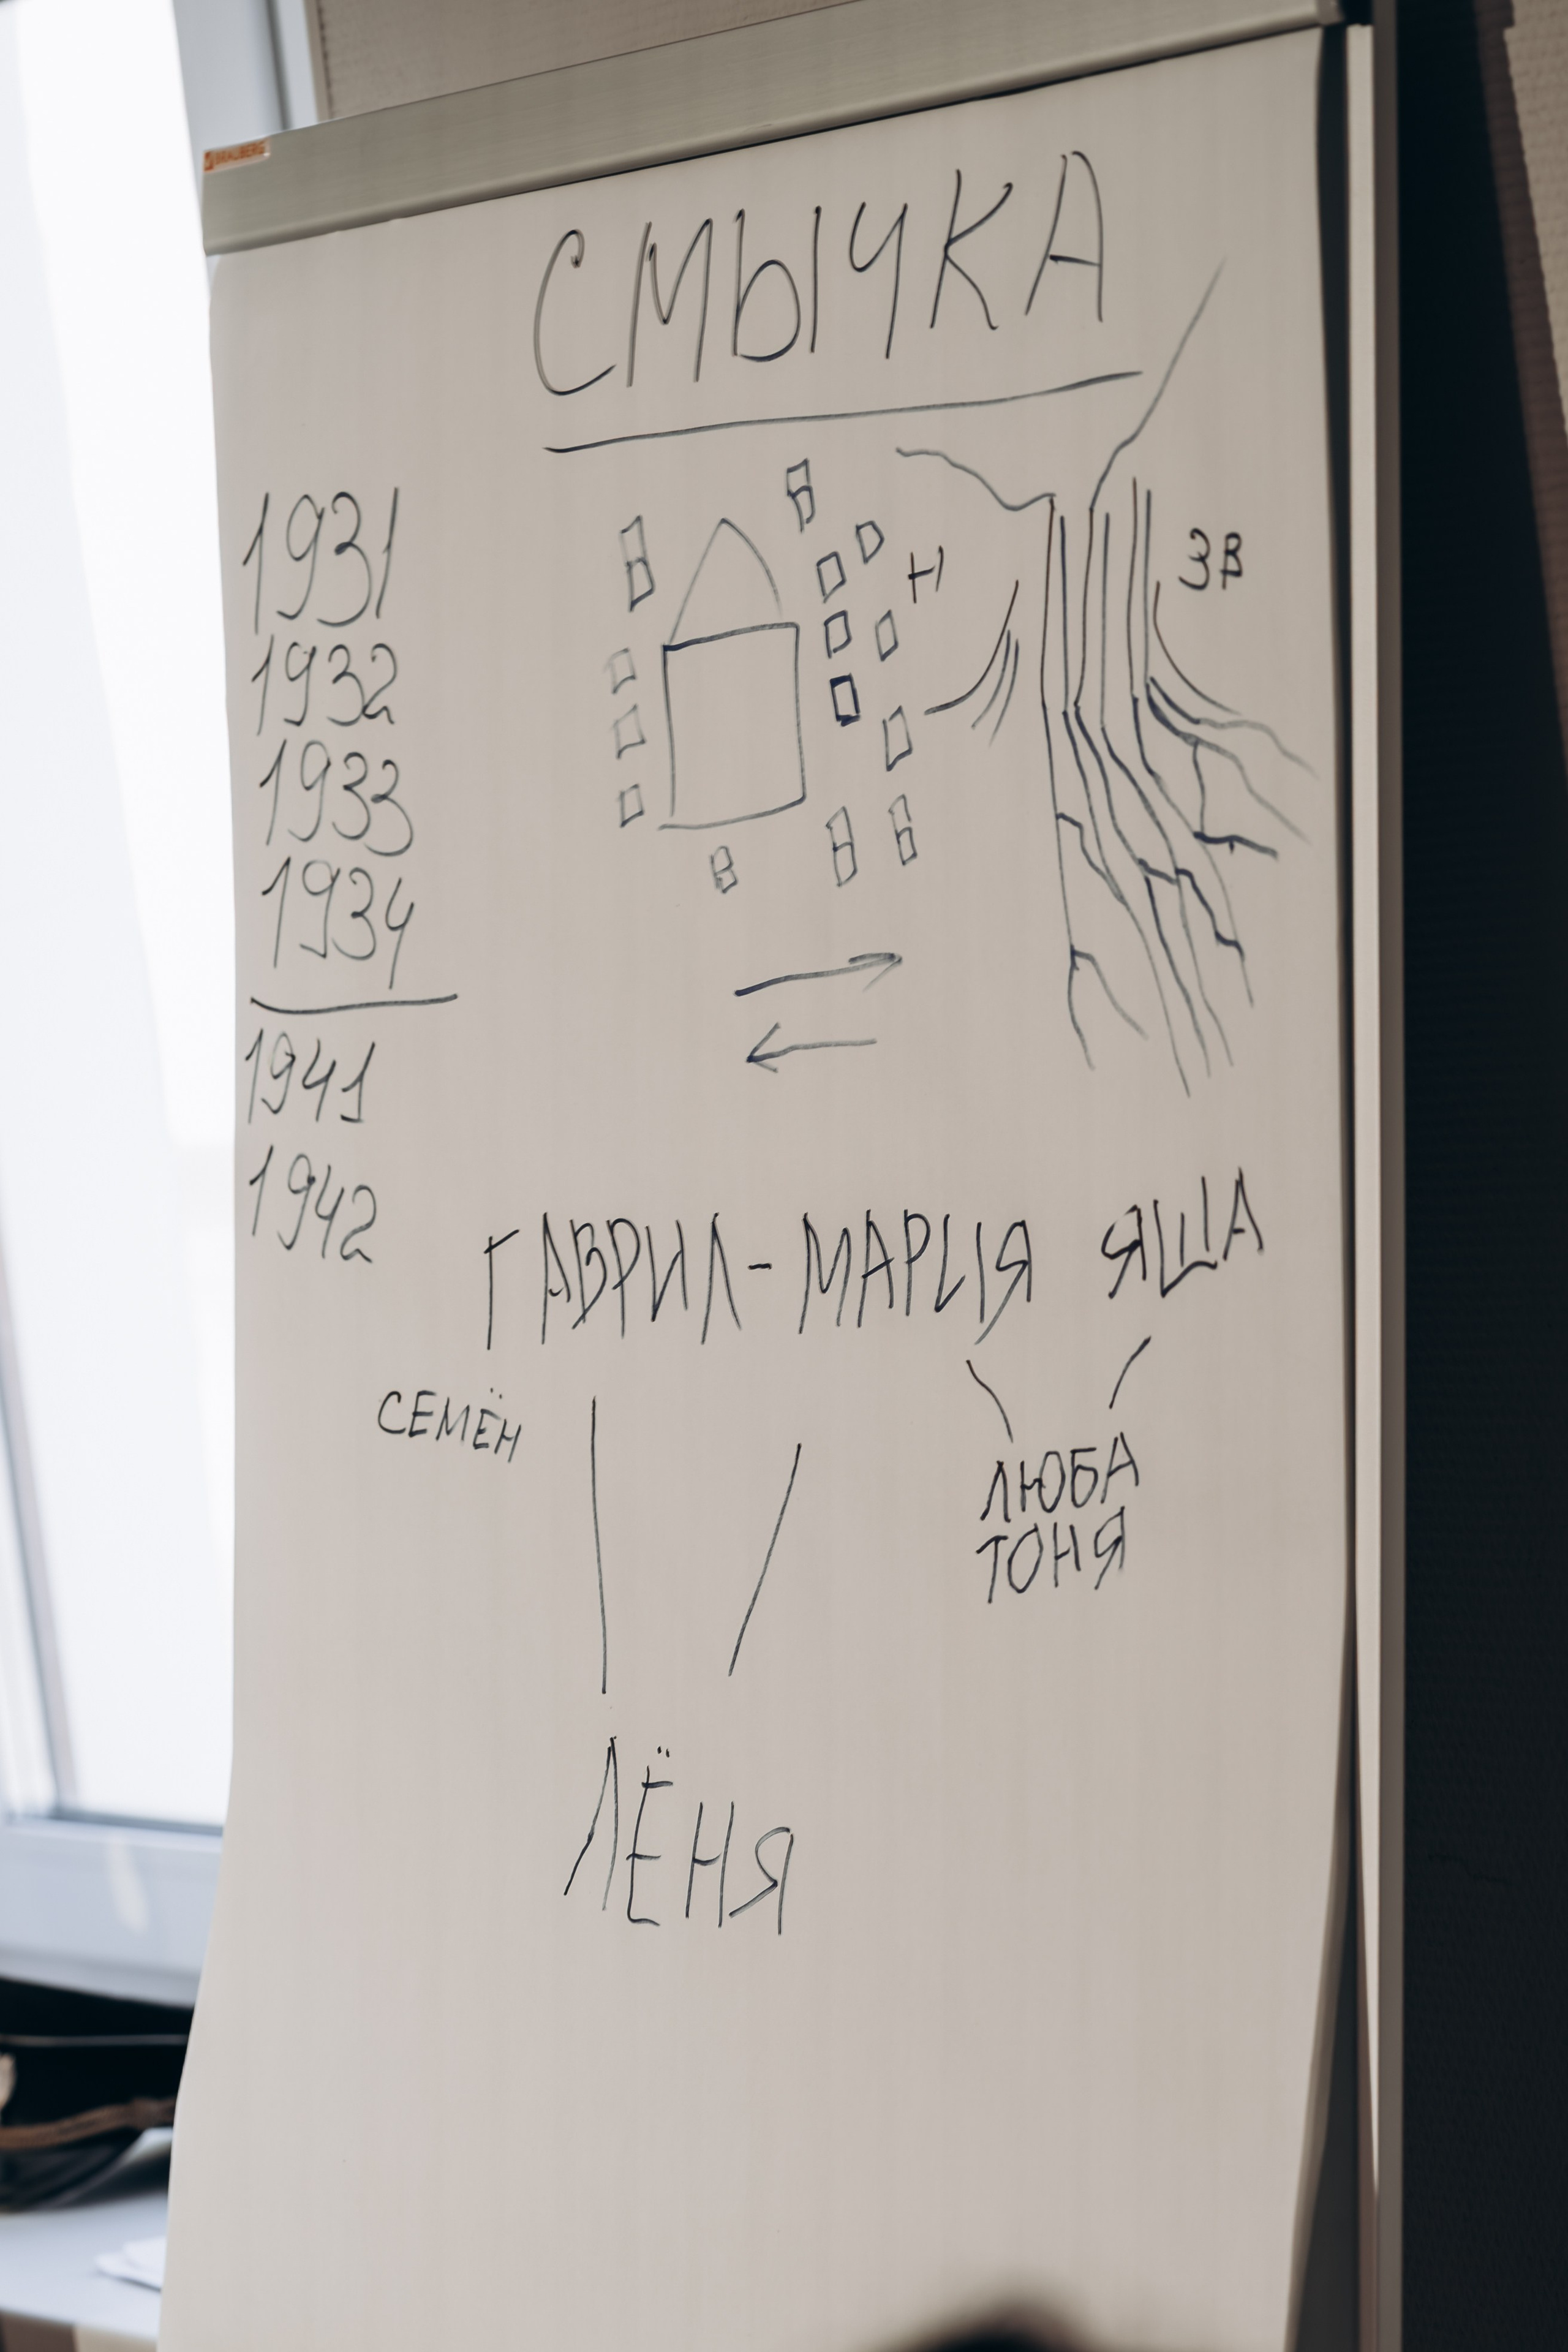 BRAUBERG
СМЫЧКА
1931
1932
1933
1934
1941
1942
Н
ЗВ
ГАВРИЛ - МАРИЯ ЯША
СЕМЁН
ЛЮБА
ТОНЯ
ЛЁНЯ